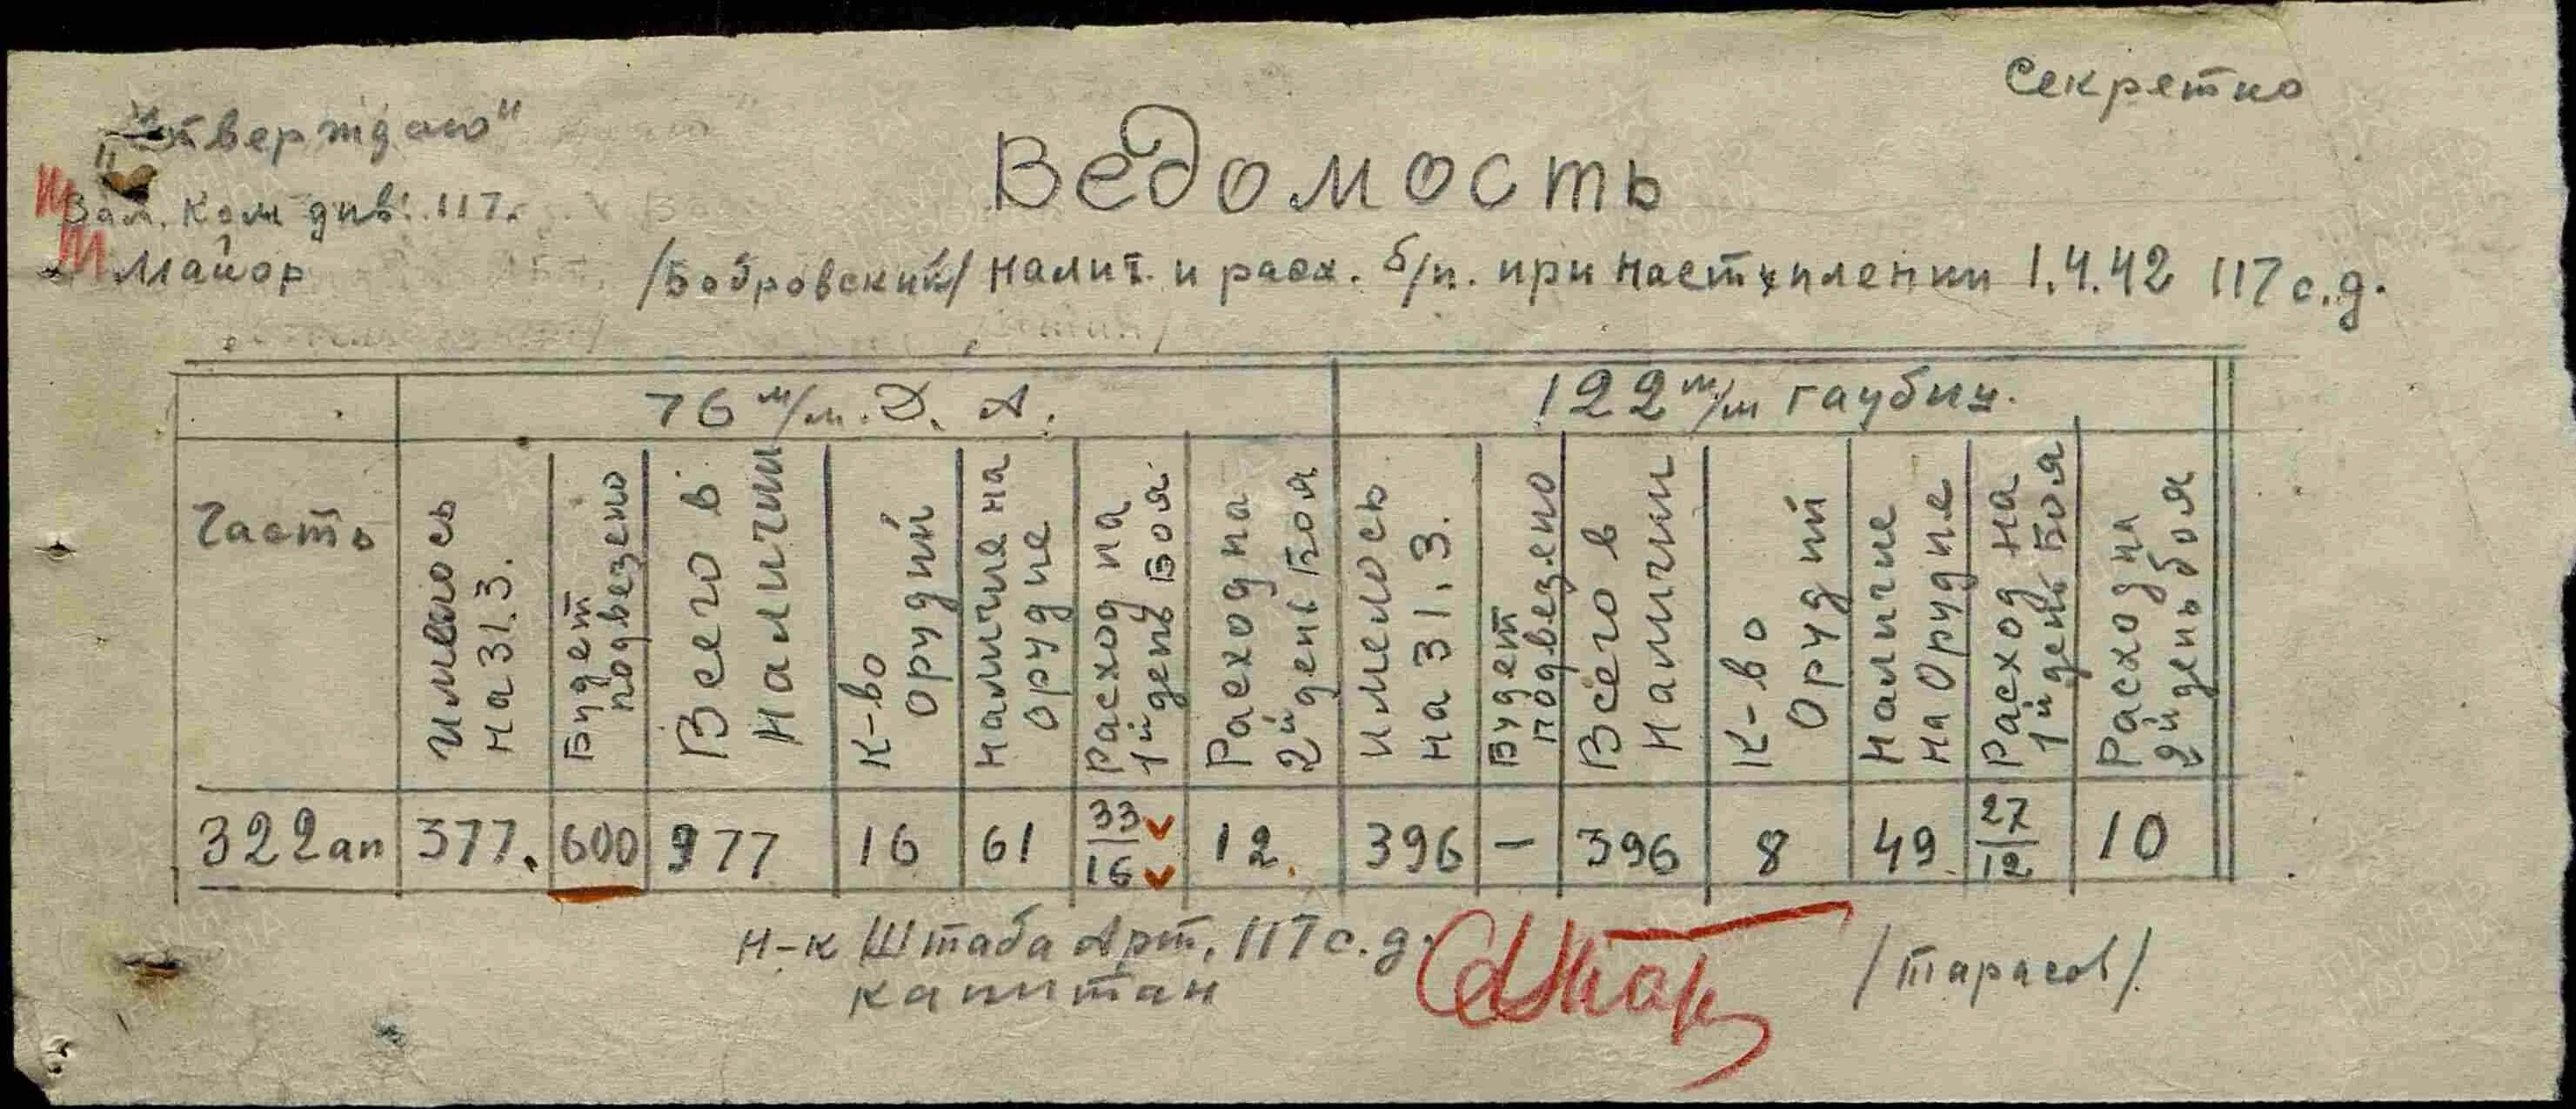 Секретно
"Утверждаю"
Зам. Ком див. 117.
Майор /Бобровский/
Ведомость
налич. и расх. б/п. при наступлении 1.4.42 117 с.д.
76 м/м. Д. А.
122 м/м гаубиц.
Часть
Имелось на 31.3.
Будет подвезено
Всего в наличии
К-во орудий
Наличие на орудие
Расход на 1й день боя
Расход на 2й день боя
Имелось на 31.3.
Будет подвезено
Всего в наличии
К-во орудий
Наличие на орудие
Расход на 1й день боя
Расход на 2й день боя
322 ап 377. 600 977 16 61 33/16 12. 396 – 396 8 49 27/12 10
Н-к Штаба Арт. 117 с.д.
капитан /Тарасов/
ПАМЯТЬ НАРОДА